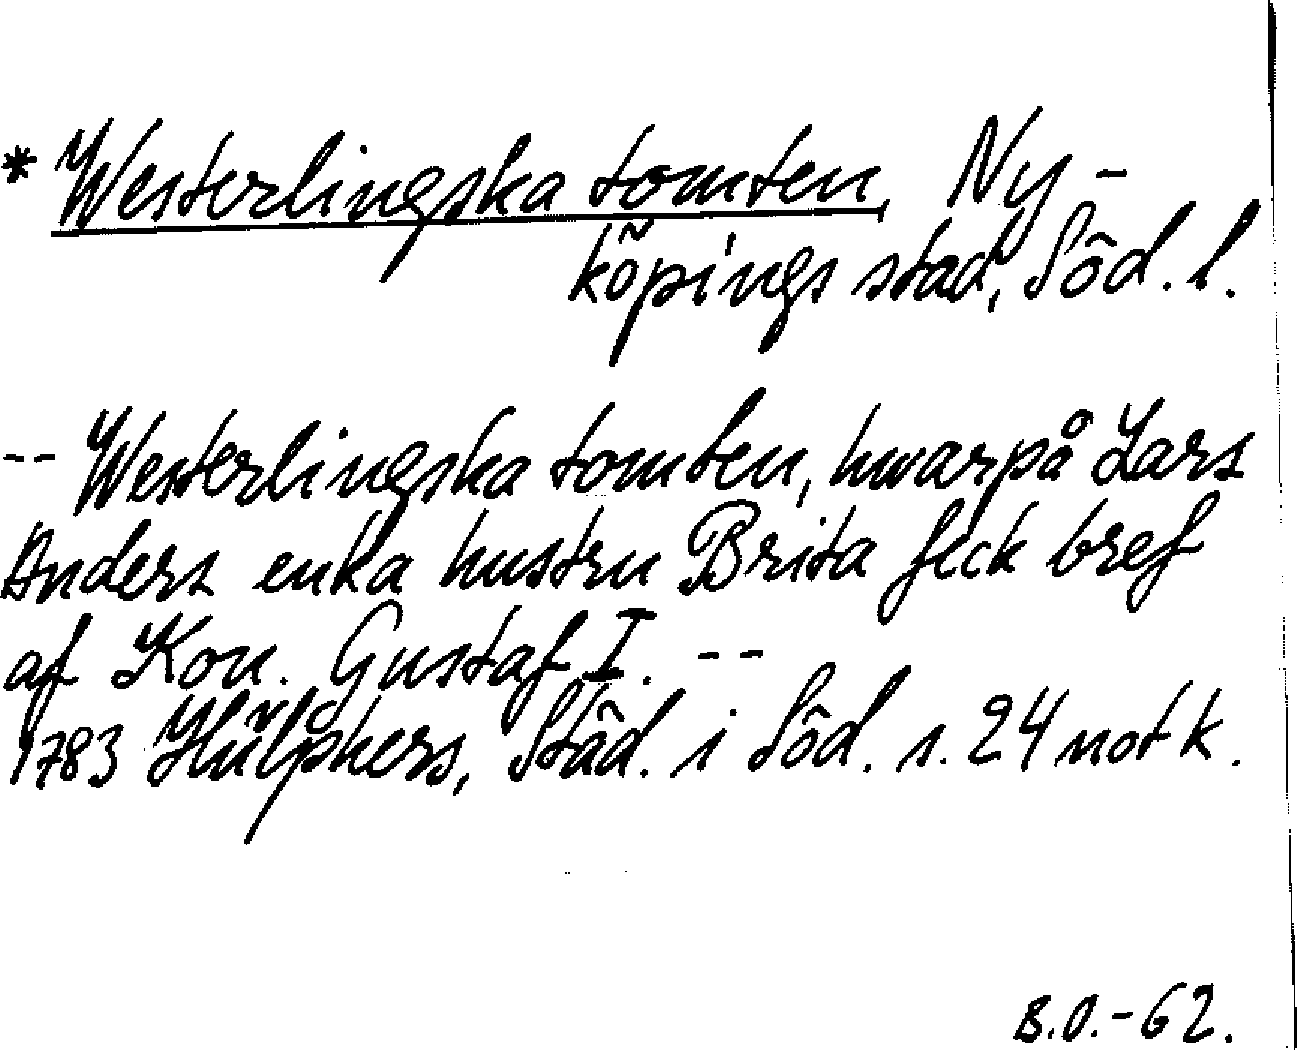 * Westerlingska tomten, Ny-
köpings stad, Söd. l.
-- Westerlingska tomten, hwarpå Lars
Anders enka hustru Brita feck bref
af Kon. Gustaf I. --
1783 Hülphers, Städ. i Söd. s. 24 not k.
B.O.-62.